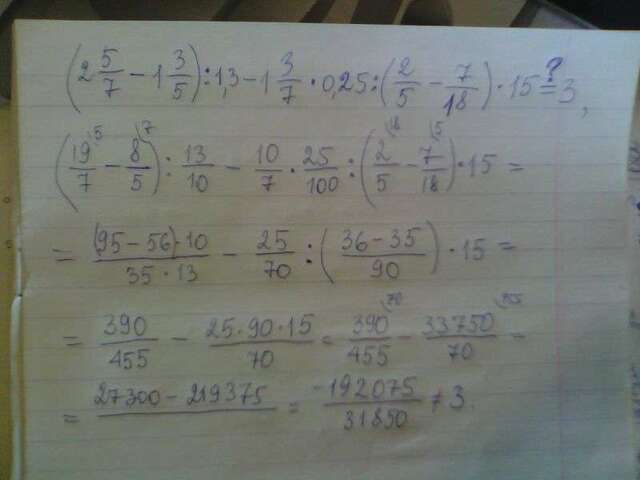 (2 5/7 − 1 3/5) : 1,3 − 1 3/7 · 0,25 : (2/5 − 7/18) · 15 =? 3,
(19/7 \5 − 8/5 \7) : 13/10 − 10/7 · 25/100 : (2/5 \18 − 7/18 \5) · 15 =
= (95 − 56) · 10 / 35 · 13 − 25/70 : (36 − 35 / 90) · 15 =
= 390/455 − 25 · 90 · 15 / 70 = 390/455 \70 − 33750/70 \455 =
= 27300 − 219375 / = −192075/31850 ≠ 3.